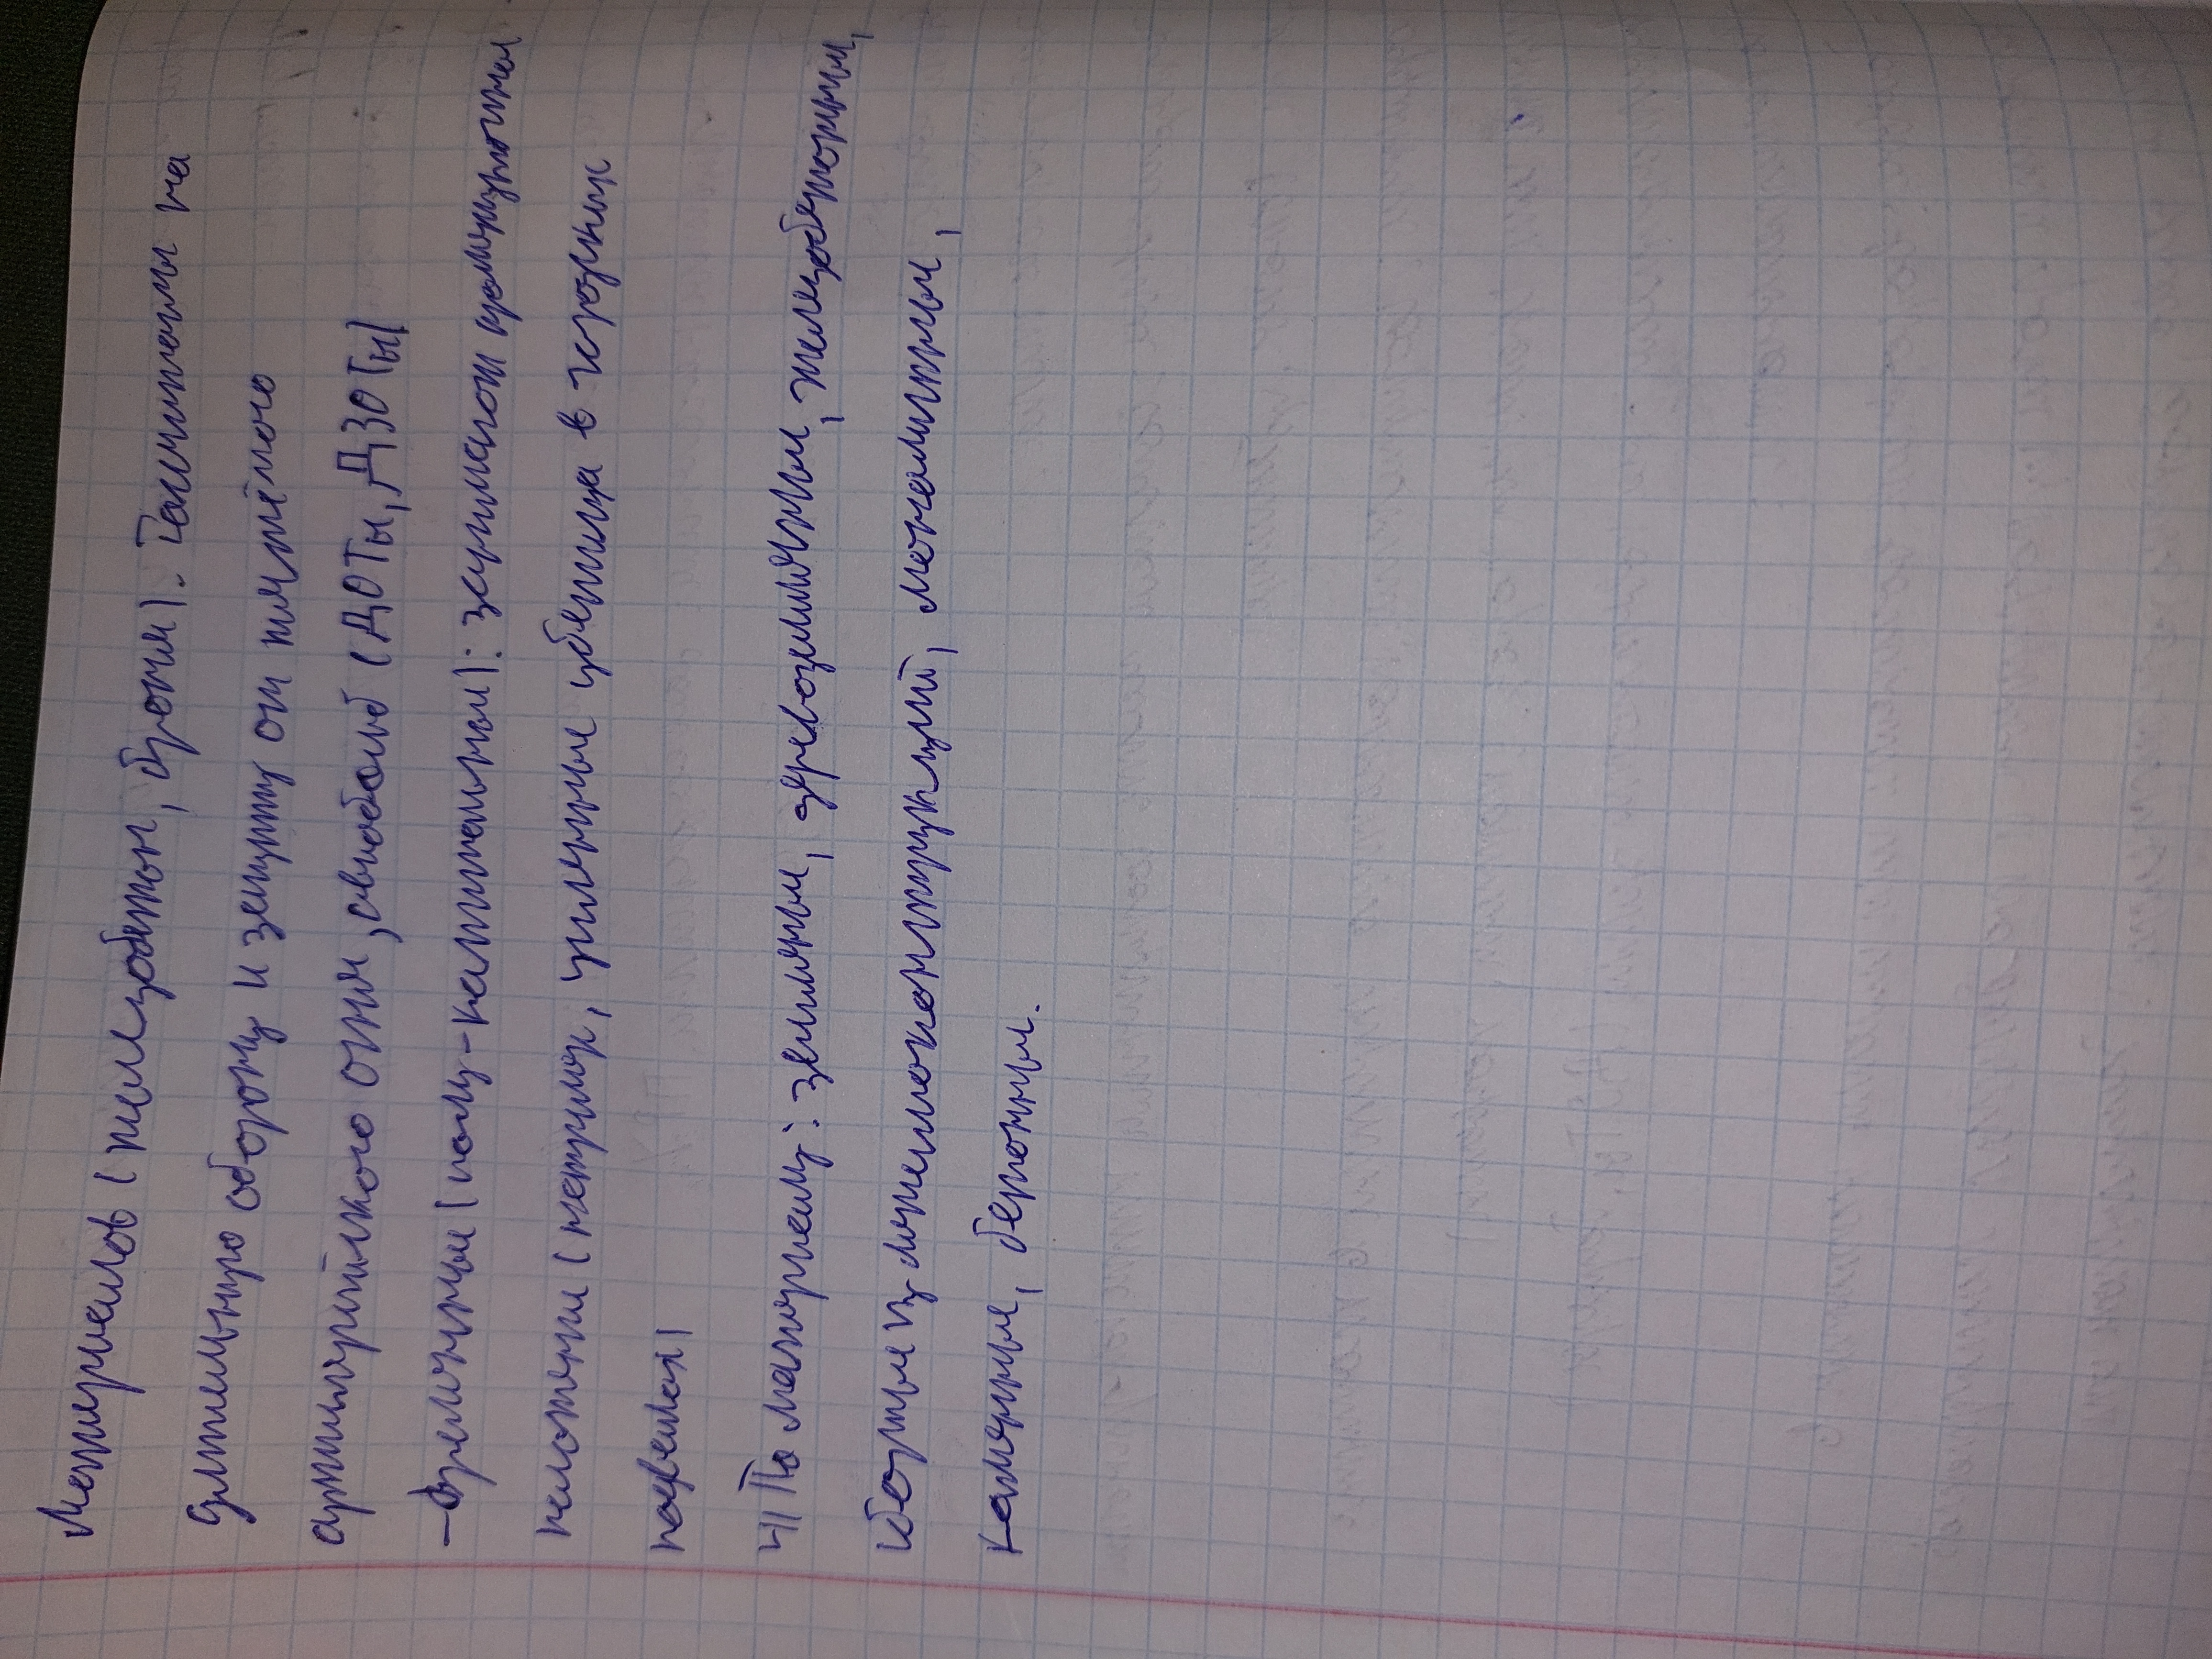 материалов (железобетон, броня). Рассчитаны на
длительную оборону и защиту от тяжёлого
артиллерийского огня, авиабомб (ДОТы, ДЗОТы)
-временные (полу-капитальные): занимают промежуточное
положение (например, усиленные убежища в городских
подвалах)
4) По материалу: земляные, деревоземляные, железобетонные,
сборные из металлоконструкций, монолитные,
каменные, бетонные.